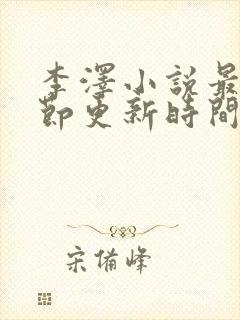 李澤小說最
節更新時間
宋備峰